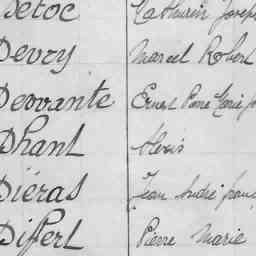 Detoc Mathurin Joseph
Devry Marcel Robert
Devvante Ernest Pierre Marie
Dhant Alexis
Diéras Jean André
Differt Pierre Marie